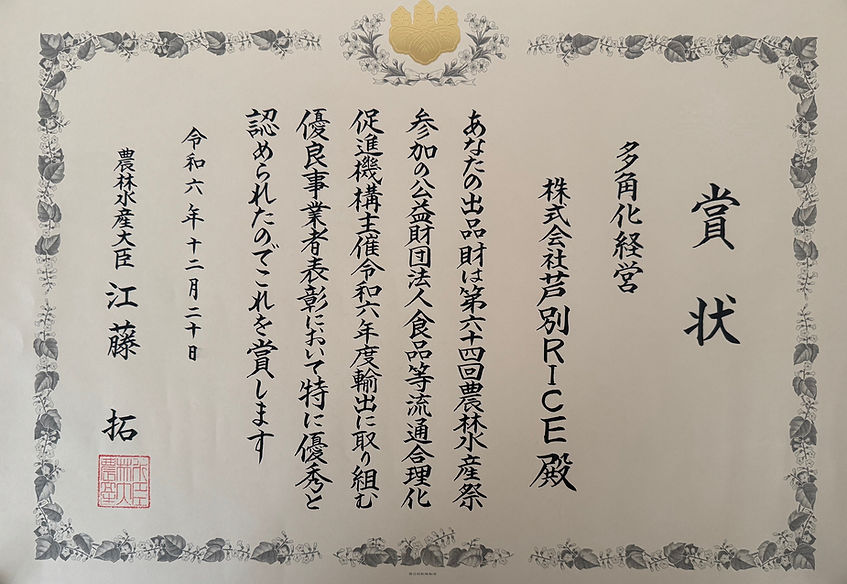 賞状
多角化経営
株式会社芦別RICE殿
あなたの出品財は第六十四回農林水産祭
参加の公益財団法人食品等流通合理化
促進機構主催令和六年度輸出に取り組む
優良事業者表彰において特に優秀と
認められたのでこれを賞します
令和六年十二月二十日
農林水産大臣 江藤 拓